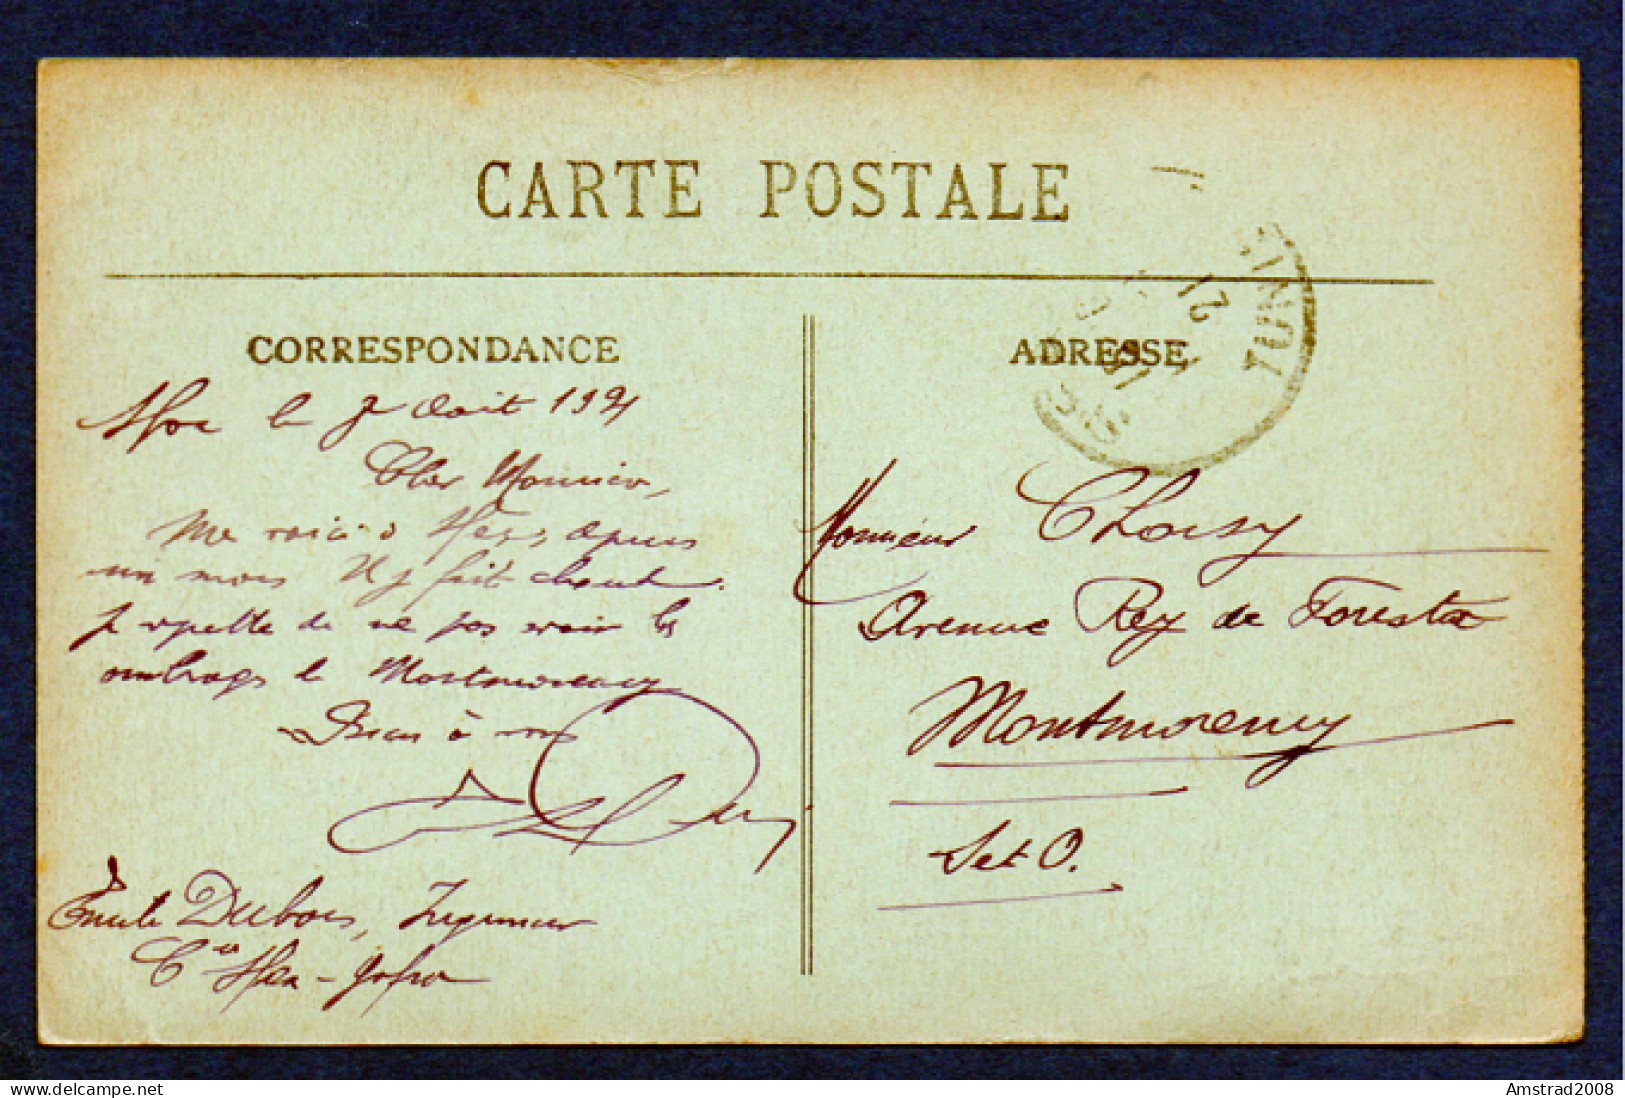 CARTE POSTALE
CORRESPONDANCE
Sfax le 7 Août 1921
Cher Monsieur,
Me voici à Sfax, depuis
un mois Il y fait chaud.
Je regrette de ne pas avoir les
ombrages de Montmorency
Bien à vous
Emile Dubois, Ingénieur
Cie Sfax - Gafsa
ADRESSE
TUNI
21
Monsieur Choisy
Avenue Rey de Foresta
Montmorency
S et O.
www.delcampe.net
Amstrad2008